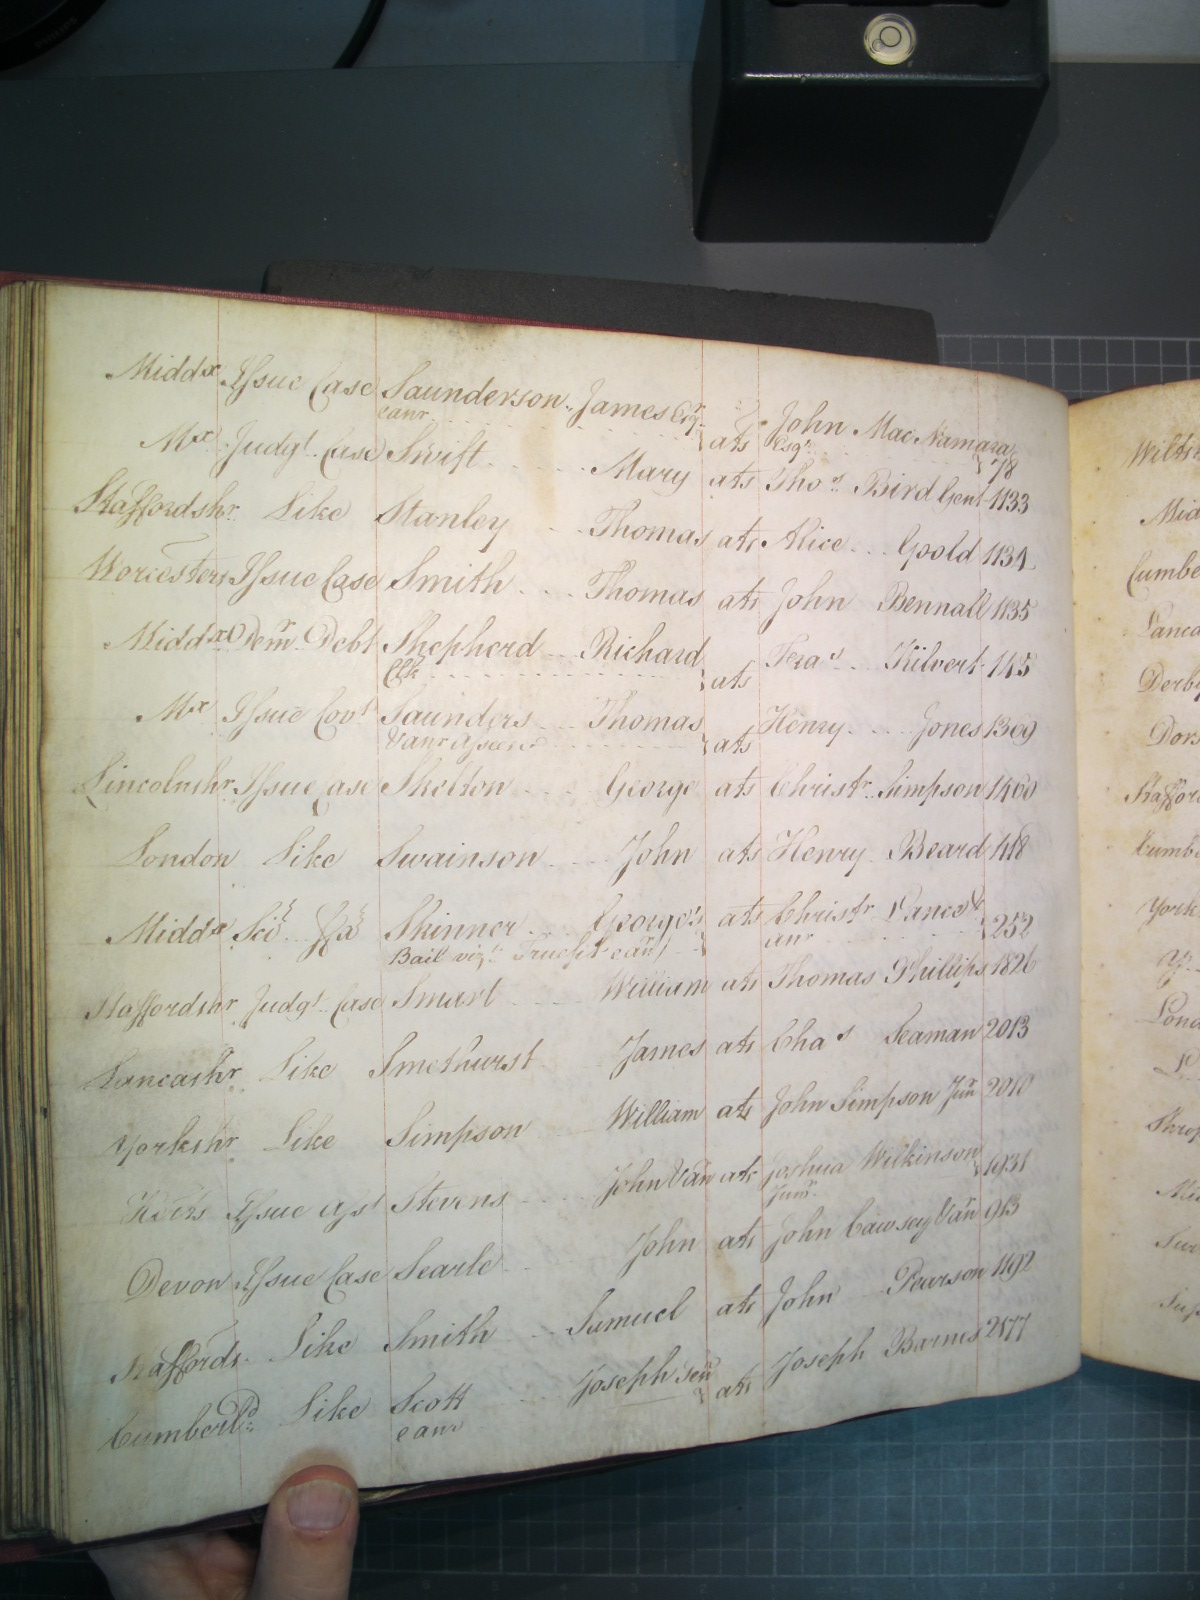 Middx Issue Case Saunderson James Esqr ats John MacNamara
eanr Esqr 78
Mx Judgt Case Swift Mary ats Thos Bird Gent 1133
Staffordshr Like Stanley Thomas ats Alice Goold 1134
Worcesters Issue Case Smith Thomas ats John Bennall 1135
Middx Demr Debt Shepherd Richard ats Fras Kilvert 145
Clk
Mx Issue Covt Saunders Thomas ats Henry Jones 1309
Lincolnshr Issue Case Skelton George ats Christr Simpson 1460
London Like Swainson John ats Henry Beard 1418
Middx Sci Fa Skinner George ats Christr 252
Bail vizt eanr anr
Staffordshr Judgt Case Smart William ats Thomas Phillips 1826
Lancashr Like Smethurst James ats Chas Seaman 2013
Yorkshr Like Simpson William ats John Simpson Junr 2010
Issue Stevens John Vanr ats Joshua Wilkinson 1931
Junr
Devon Issue Case Searle John ats John Cawsey Vanr 913
Staffords Like Smith Samuel ats John Pearson 1192
Cumberld Like Scott Joseph Senr ats Joseph Barnes 2177
eanr
Wilts
Mid
Cumbe
Lanca
Derby
Dors
Staffor
Cumb
York
Lond
Shrop